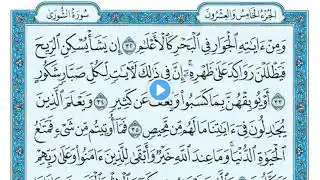 الجزء الخامس والعشرون
سورة الشورى
وَمِنْ ءَايَٰتِهِ ٱلْجَوَارِ فِى ٱلْبَحْرِ كَٱلْأَعْلَٰمِ ٣٢ إِن يَشَأْ يُسْكِنِ ٱلرِّيحَ
فَيَظْلَلْنَ رَوَاكِدَ عَلَىٰ ظَهْرِهِۦٓ ۚ إِنَّ فِى ذَٰلِكَ لَءَايَٰتٍ لِّكُلِّ صَبَّارٍ شَكُورٍ
٣٣ أَوْ يُوبِقْهُنَّ بِمَا كَسَبُوا۟ وَيَعْفُ عَن كَثِيرٍ ٣٤ وَيَعْلَمَ ٱلَّذِينَ
يُجَٰدِلُونَ فِىٓ ءَايَٰتِنَا مَا لَهُم مِّن مَّحِيصٍ ٣٥ فَمَآ أُوتِيتُم مِّن شَىْءٍ فَمَتَٰعُ
ٱلْحَيَوٰةِ ٱلدُّنْيَا ۖ وَمَا عِندَ ٱللَّهِ خَيْرٌ وَأَبْقَىٰ لِلَّذِينَ ءَامَنُوا۟ وَعَلَىٰ رَبِّهِمْ